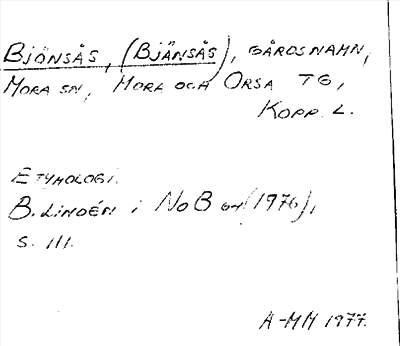 BJÖNSÅS, (BJÄNSÅS), GÅRDSNAMN,
MORA SN, MORA OCH ORSA TG,
KOPP. L.
ETYMOLOGI.
B. LINDÉN i NoB 64 (1976),
S. 111.
A-MM 1977.